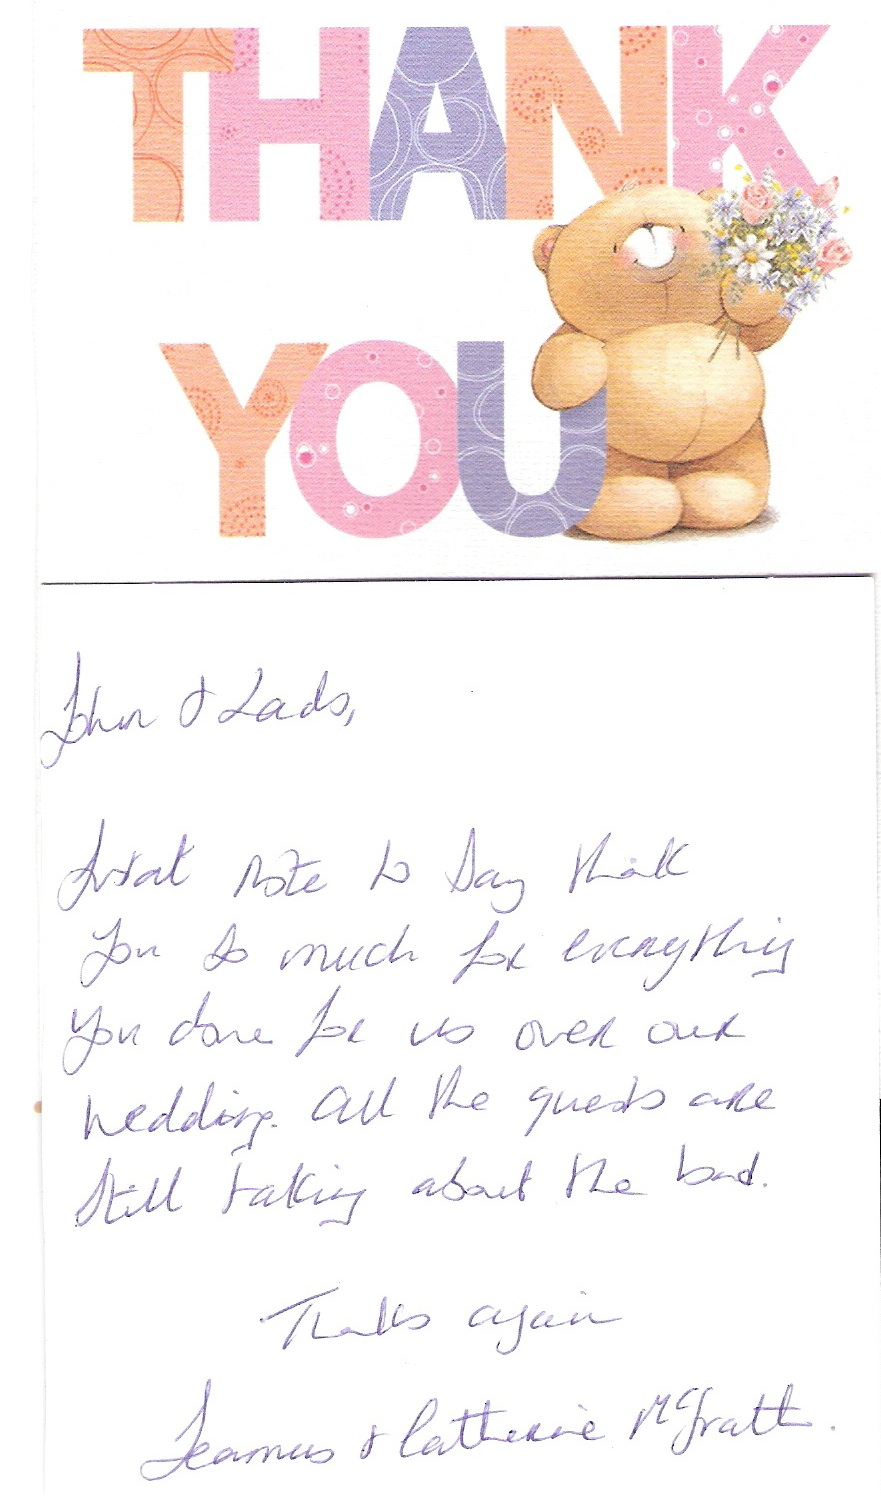 THANK
YOU
John & Lads,
Just note to Say thank
you so much for everything
you done for us over our
wedding. All the guests are
Still talking about the band.
Thanks again
Seamus & Catherine McGrath.